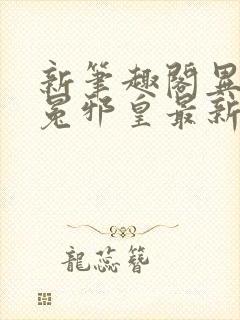 新笔趣阁異
冕邪皇最新
龍蕊簪